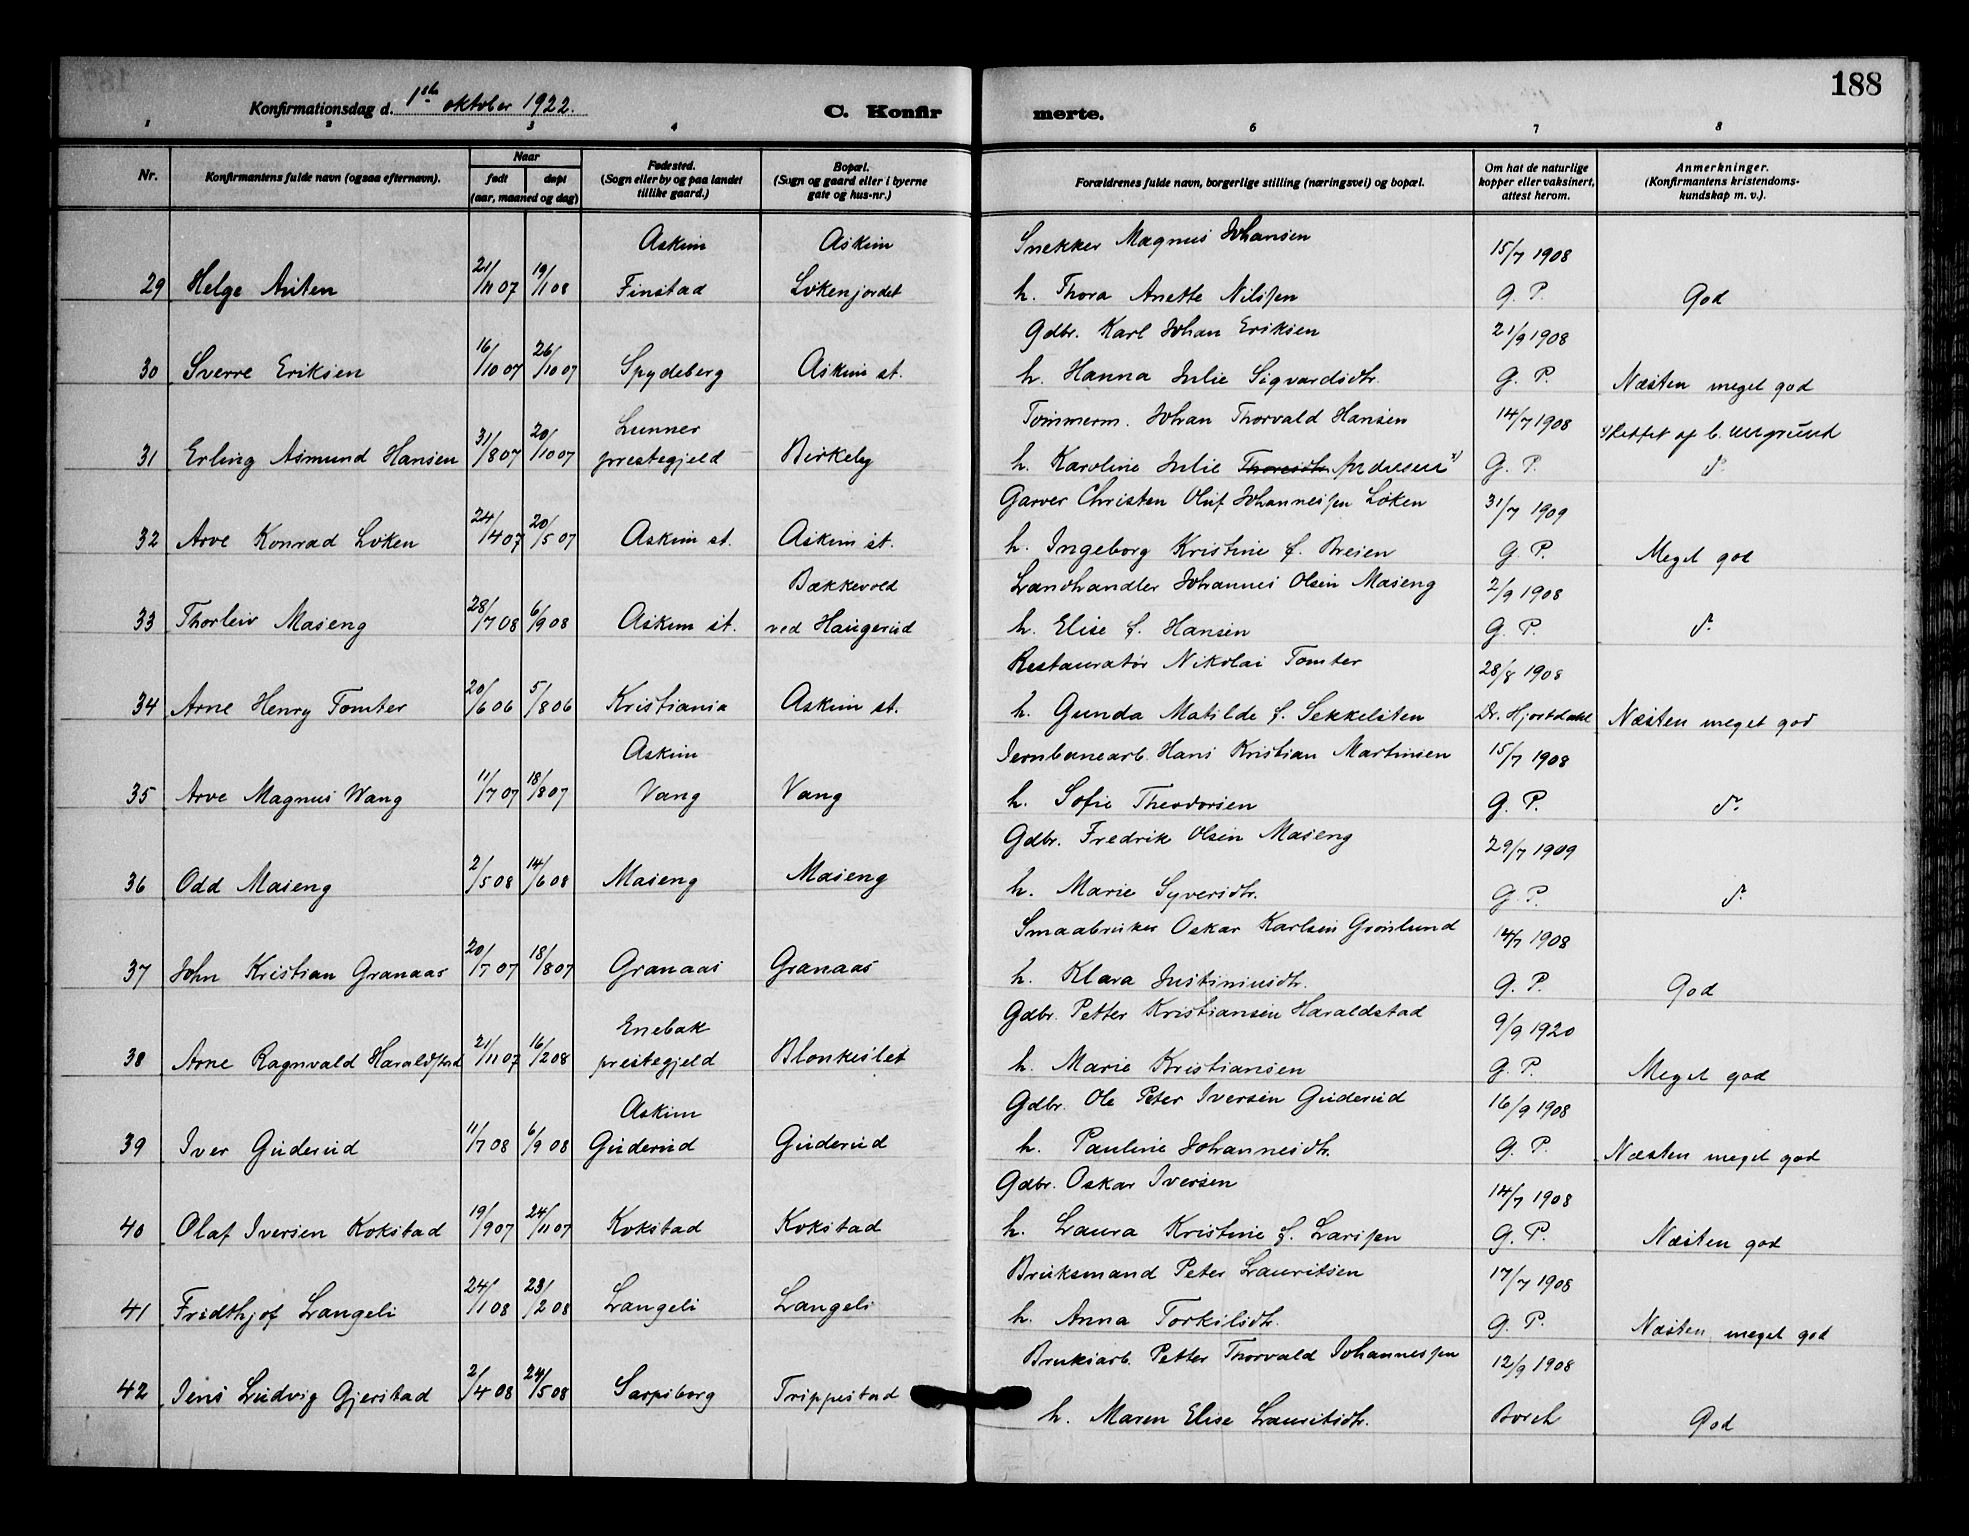 188
Konfirmationsdag d. 1ste oktober 1922.
C. Konfirmerte.
1 2 3 4 6 7 8
Nr.
Konfirmantens fulde navn (ogsaa efternavn).
Naar
født
døpt
(aar, maaned og dag)
Fødested.
(Sogn eller by og paa landet
tillike gaard.)
Bopæl.
(Sogn og gaard eller i byerne
gate og hus-nr.)
Forældrenes fulde navn, borgerlige stilling (næringsvei) og bopæl.
Om hat de naturlige
kopper eller vaksinert,
attest herom.
Anmerkninger.
(Konfirmantens kristendoms-
kundskap m. v.).
Askim Askim Snekker Magnus Johansen 15/7 1908
29 Helge Anten 21/11 07 19/1 08 Finstad Lokenjordet h. Thora Anette Nilssen G. P. God
Gdbr. Karl Johan Eriksen 21/9 1908
30 Sverre Eriksen 16/10 07 26/10 07 Spydeberg Askim st. h. Hanna Julie Sigvardsdtr. G. P. Næsten meget god
Lunner Tømmerm. Johan Thorvald Hansen 14/7 1908 x) Rettet af
31 Erling Asmund Hansen 31/8 07 20/10 07 prestegjeld Birkeby h. Karoline Julie Thoresdtr. Andersen x) G. P. d°
Garver Christen Oluf Johannessen Løken 31/7 1909
32 Arve Konrad Loken 24/4 07 20/5 07 Askim st. Askim st. h. Ingeborg Kristine f. Breien G. P. Meget god
Bækkevold Landhandler Johannes Olsen Maseng 2/9 1908
33 Thorleiv Maseng 28/7 08 6/9 08 Askim st. ved Haugerud h. Elise f. Hansen G. P. d°
Restauratør Nikolai Tomter 28/8 1908
34 Arne Henry Tomter 20/6 06 5/8 06 Kristiania Askim st. h. Gunda Matilde f. Sekkelsten Dr. Hjortdahl Næsten meget god
Askim Jernbanearb. Hans Kristian Martinsen 15/7 1908
35 Arve Magnus Wang 11/7 07 18/8 07 Vang Vang h. Sofie Theodorsen G. P. d°
Gdbr. Fredrik Olsen Maseng 29/7 1909
36 Odd Maseng 2/5 08 14/6 08 Maseng Maseng h. Marie Syversdtr. G. P. d°
Smaabruker Oskar Karlsen Grønlund 14/7 1908
37 John Kristian Granaas 20/7 07 18/8 07 Granaas Granaas h. Klara Justiniusdtr. G. P. God
Enebak Gdbr. Petter Kristiansen Haraldstad 9/9 1920
38 Arne Ragnvald Haraldstad 21/11 07 16/2 08 prestegjeld Blonkeslet h. Marie Kristiansen G. P. Meget god
Askim Gdbr. Ole Peter Iversen Guderud 16/9 1908
39 Iver Guderud 11/7 08 6/9 08 Guderud Guderud h. Pauline Johannesdtr. G. P. Næsten meget god
Gdbr. Oskar Iversen 14/7 1908
40 Olaf Iversen Kokstad 19/9 07 24/11 07 Kokstad Kokstad h. Laura Kristine f. Larssen G. P. Næsten god
Bruksmand Peter Lauritsen 17/7 1908
41 Fridthjof Langeli 24/1 08 23/2 08 Langeli Langeli h. Anna Torkilsdtr. G. P. Næsten meget god
Bruksarb. Petter Thorvald Johannessen 12/9 1908
42 Jens Ludvig Gjerstad 2/4 08 24/5 08 Sarpsborg Trippestad h. Maren Elise Lauritsdtr. Borch God